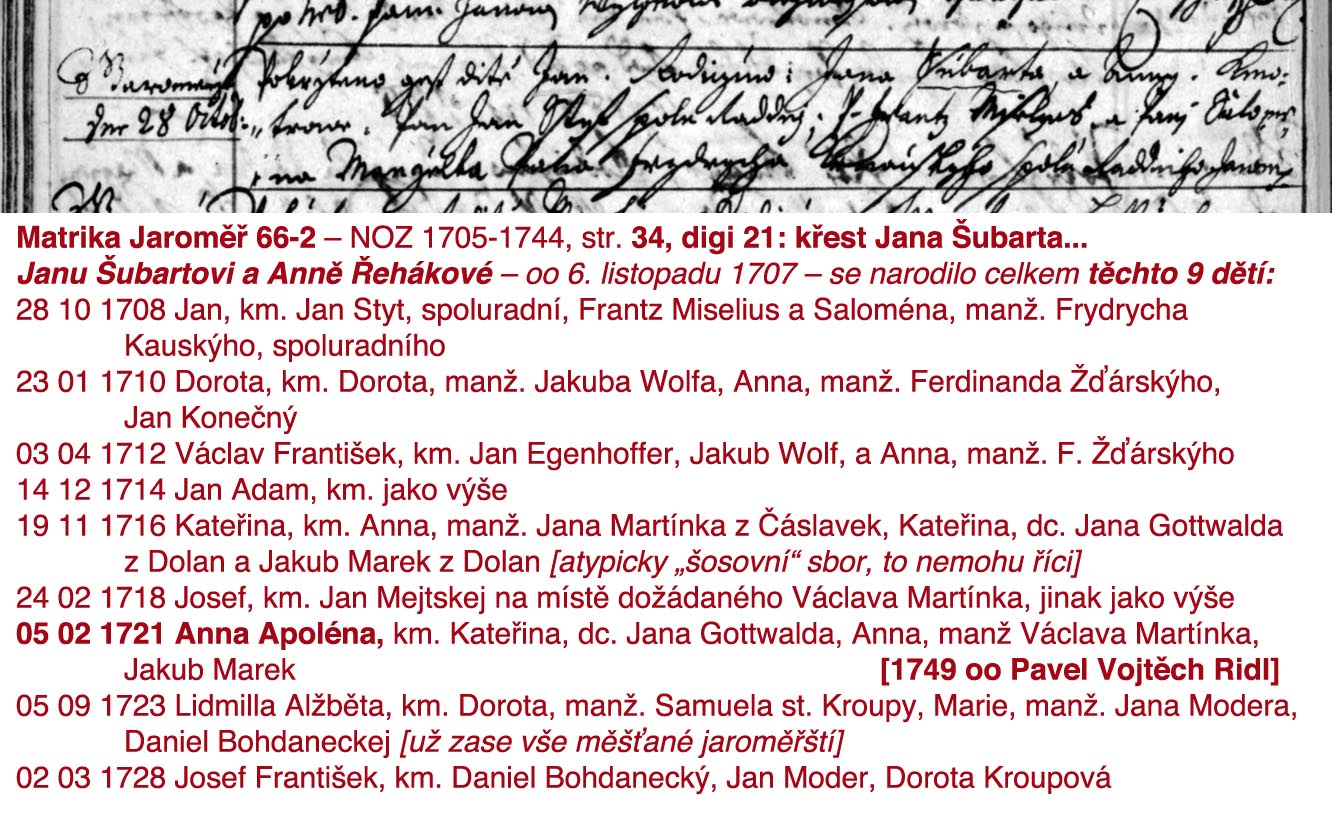 z Jaroměře Pokrztěno gest dítě Jan. Rodiczuw: Jana Šubarta, a Anny. Kmo-
den 28 Octob: trowe. Pan Jan Styt spolu Raddnj, P. Frantz a Panj Salome
na Manželka Pana Frydrycha spolu Raddniho
Matrika Jaroměř 66-2 – NOZ 1705-1744, str. 34, digi 21: křest Jana Šubarta...
Janu Šubartovi a Anně Řehákové – oo 6. listopadu 1707 – se narodilo celkem těchto 9 dětí:
28 10 1708 Jan, km. Jan Styt, spoluradní, Frantz Miselius a Saloména, manž. Frydrycha
Kauskýho, spoluradního
23 01 1710 Dorota, km. Dorota, manž. Jakuba Wolfa, Anna, manž. Ferdinanda Žďárskýho,
Jan Konečný
03 04 1712 Václav František, km. Jan Egenhoffer, Jakub Wolf, a Anna, manž. F. Žďárskýho
14 12 1714 Jan Adam, km. jako výše
19 11 1716 Kateřina, km. Anna, manž. Jana Martínka z Čáslavek, Kateřina, dc. Jana Gottwalda
z Dolan a Jakub Marek z Dolan [atypicky „šosovní“ sbor, to nemohu říci]
24 02 1718 Josef, km. Jan Mejtskej na místě dožádaného Václava Martínka, jinak jako výše
05 02 1721 Anna Apoléna, km. Kateřina, dc. Jana Gottwalda, Anna, manž Václava Martínka,
Jakub Marek [1749 oo Pavel Vojtěch Ridl]
05 09 1723 Lidmilla Alžběta, km. Dorota, manž. Samuela st. Kroupy, Marie, manž. Jana Modera,
Daniel Bohdaneckej [už zase vše měšťané jaroměřští]
02 03 1728 Josef František, km. Daniel Bohdanecký, Jan Moder, Dorota Kroupová